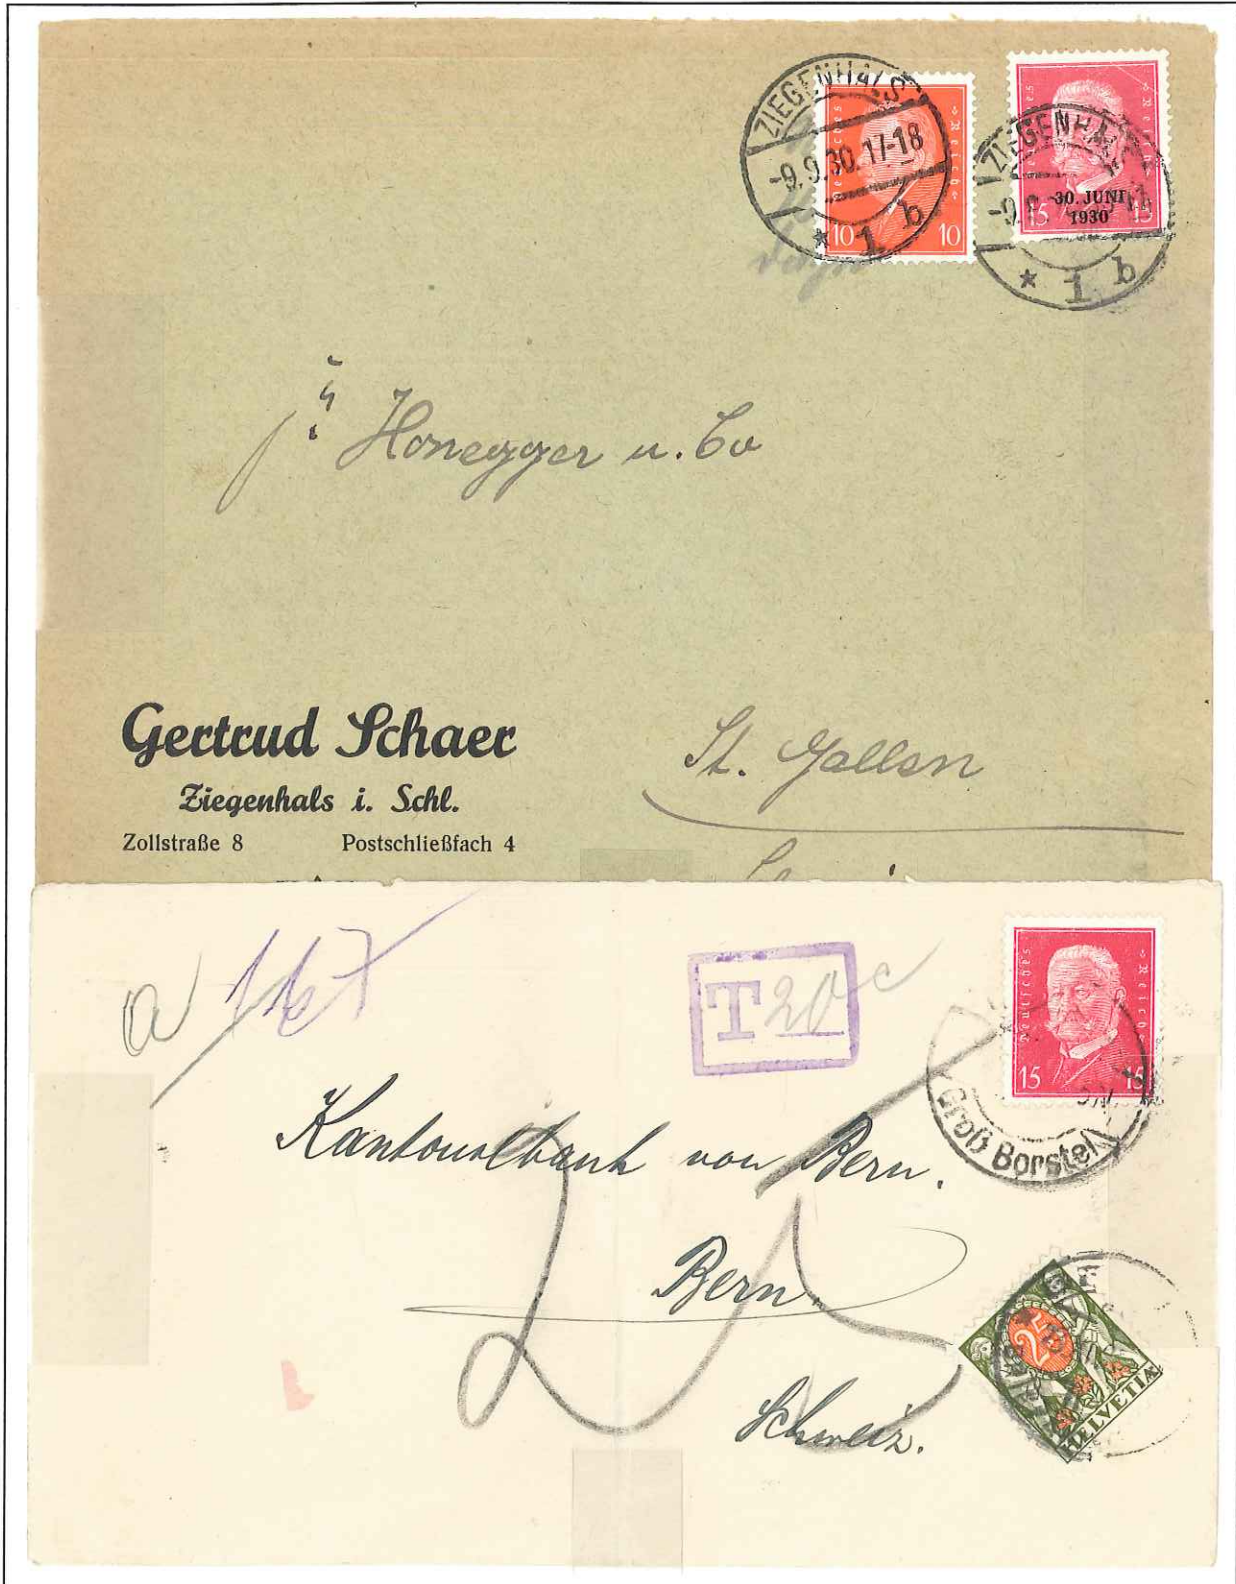 ZIEGENHALS
-9.9.30.17-18
* 1 b
Deutsches Reich
10 10
ZIEGENHALS
* 1 b
Deutsches Reich
30. JUNI
1930
15 15
Honegger u. Co
Gertrud Schaer
Ziegenhals i. Schl.
Zollstraße 8 Postschließfach 4
St. Gallen
a 167
T 20 c
Deutsches Reich
15 15
Groß Borstel
Kantonalbank von Bern.
Bern
25
25
HELVETIA
Schweiz.